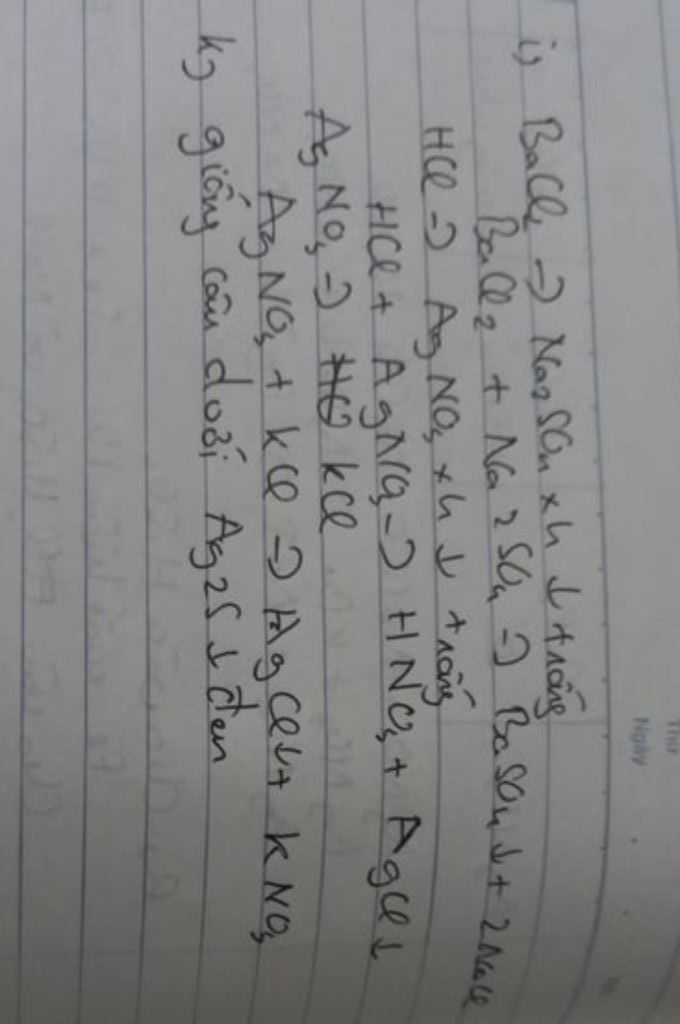 i) BaCl₂ → Na₂SO₄ xh ↓ trắng
BaCl₂ + Na2SO₄ → BaSO₄↓ + 2NaCl
HCl → AgNO₃ xh ↓ trắng
HCl + AgNO₃ → HNO₃ + AgCl↓
AgNO₃ → KCl
AgNO₃ + KCl → AgCl↓ + KNO₃
k) giống câu dưới Ag2S ↓ đen
Thứ
Ngày